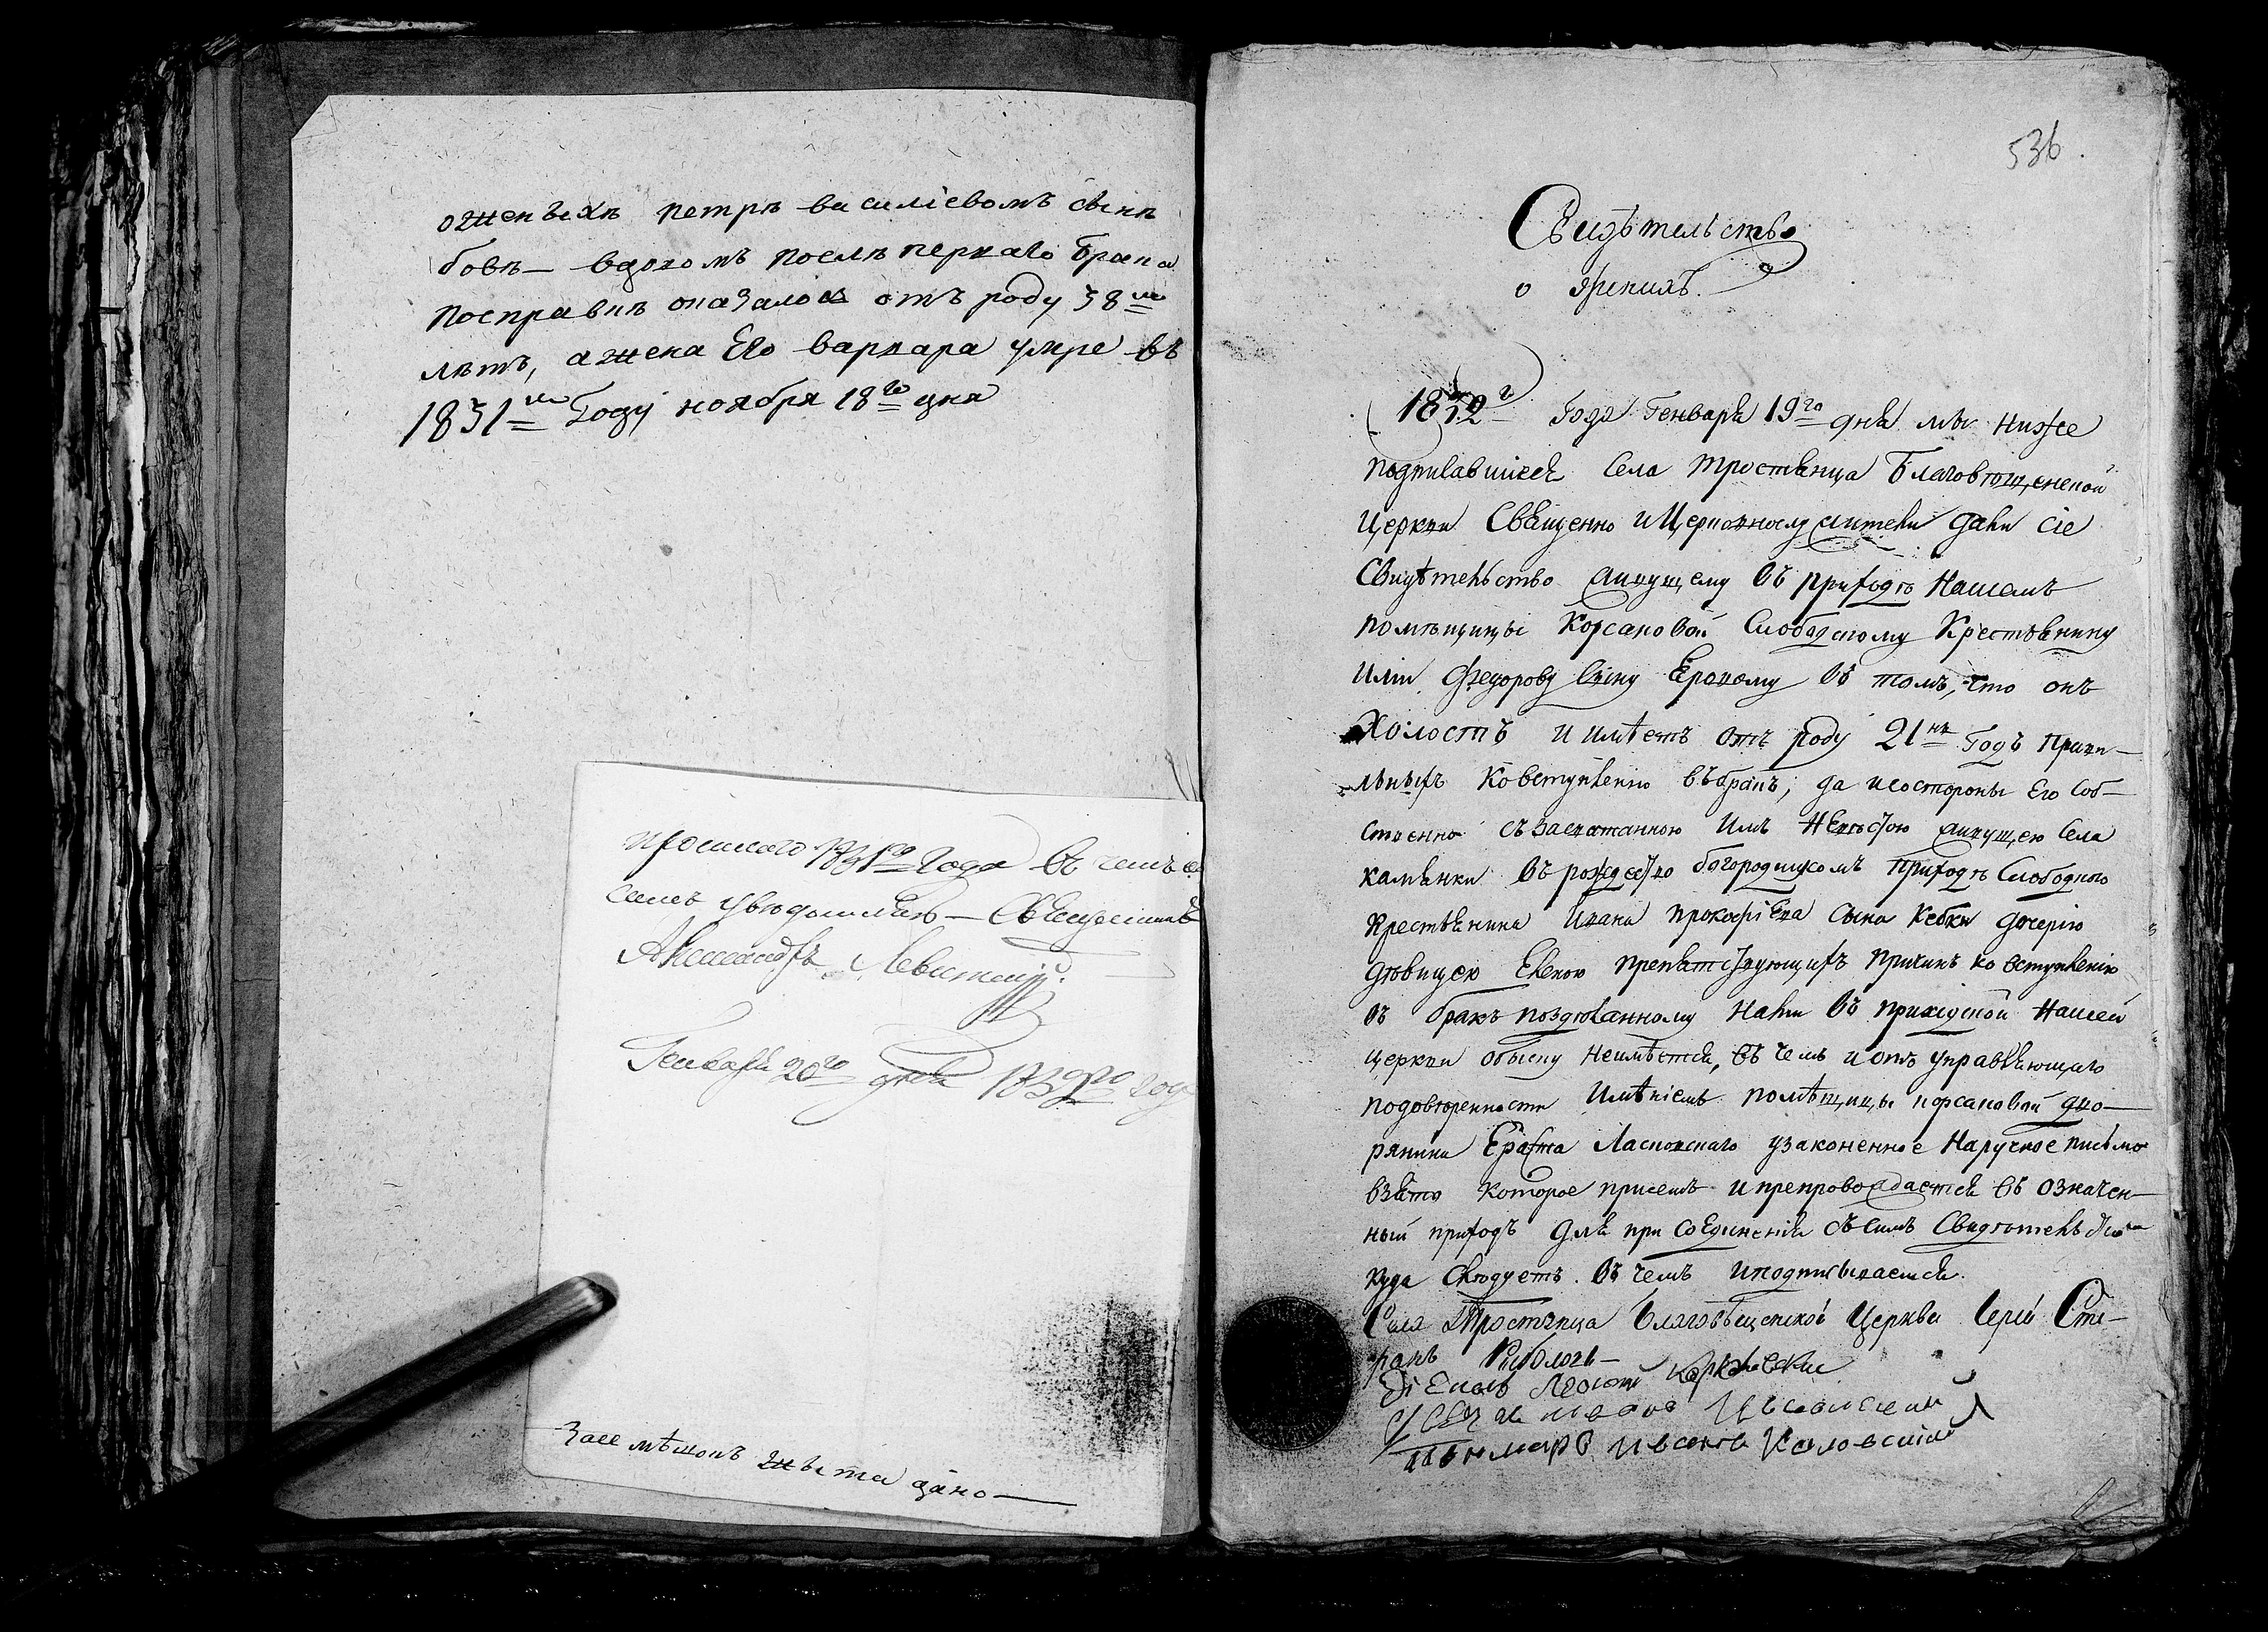 оженихѣ петрѣ василiевомъ сынѣ
бовѣ — вдохомъ послѣ перваго брака
посправкѣ оказалос отъ роду 38ми
лѣтъ, ажена Его варвара умре въ
1831м Году ноября 18го дня
прошлаго 1831го Года въ чемъ
симъ увѣдомляю — Священникъ
Александръ Левитскiй.
Генваря 20го дня 1832го Года
Засе мѣшокъ жита дано —
536.
Свидѣтельство
о женихѣ.
1832г Года Генваря 19го дня мы ниже
подписавшiеся Села Тростянца Благовѣщенской
Церкви Священно и Церковнослужители дали сiе
Свидѣтельство живущему въ приходѣ нашемъ
помѣщицы Корсаковой Слободскому Крестьянину
Федорову сыну въ томъ, что онъ
Холостъ и имѣетъ отъ роду 21й Годъ прили-
чныхъ ковступленiю въбракъ, да исостороны Его соб-
ственно съ засватанною имъ Невѣстою живущею Села
камянки въ рождество богородицкомъ приходѣ Слободного
крестьянина Ивана прокофiева сына Кебки дочерiю
дѣвицею Еленою препятствующихъ причинъ ко вступленiю
въ бракъ поздѣланному нами въ приходской нашей
церкви обыску неимѣется, въ чемъ и отъ управляющаго
подовѣренности имѣнiемъ помѣщицы корсаковой дво-
рянина Ераста Ласковскаго узаконенное наручное письмо
взято которое присемъ и препровождается въ означен-
ный приходъ для при соединенiя съ симъ Свидѣтельством
куда слѣдуетъ. въ чемъ иподписываемся.
Села Тростянца Благовѣщенской Церкви Iерей Сте-
фанъ
Дiаконъ
Пономаръ Иванъ